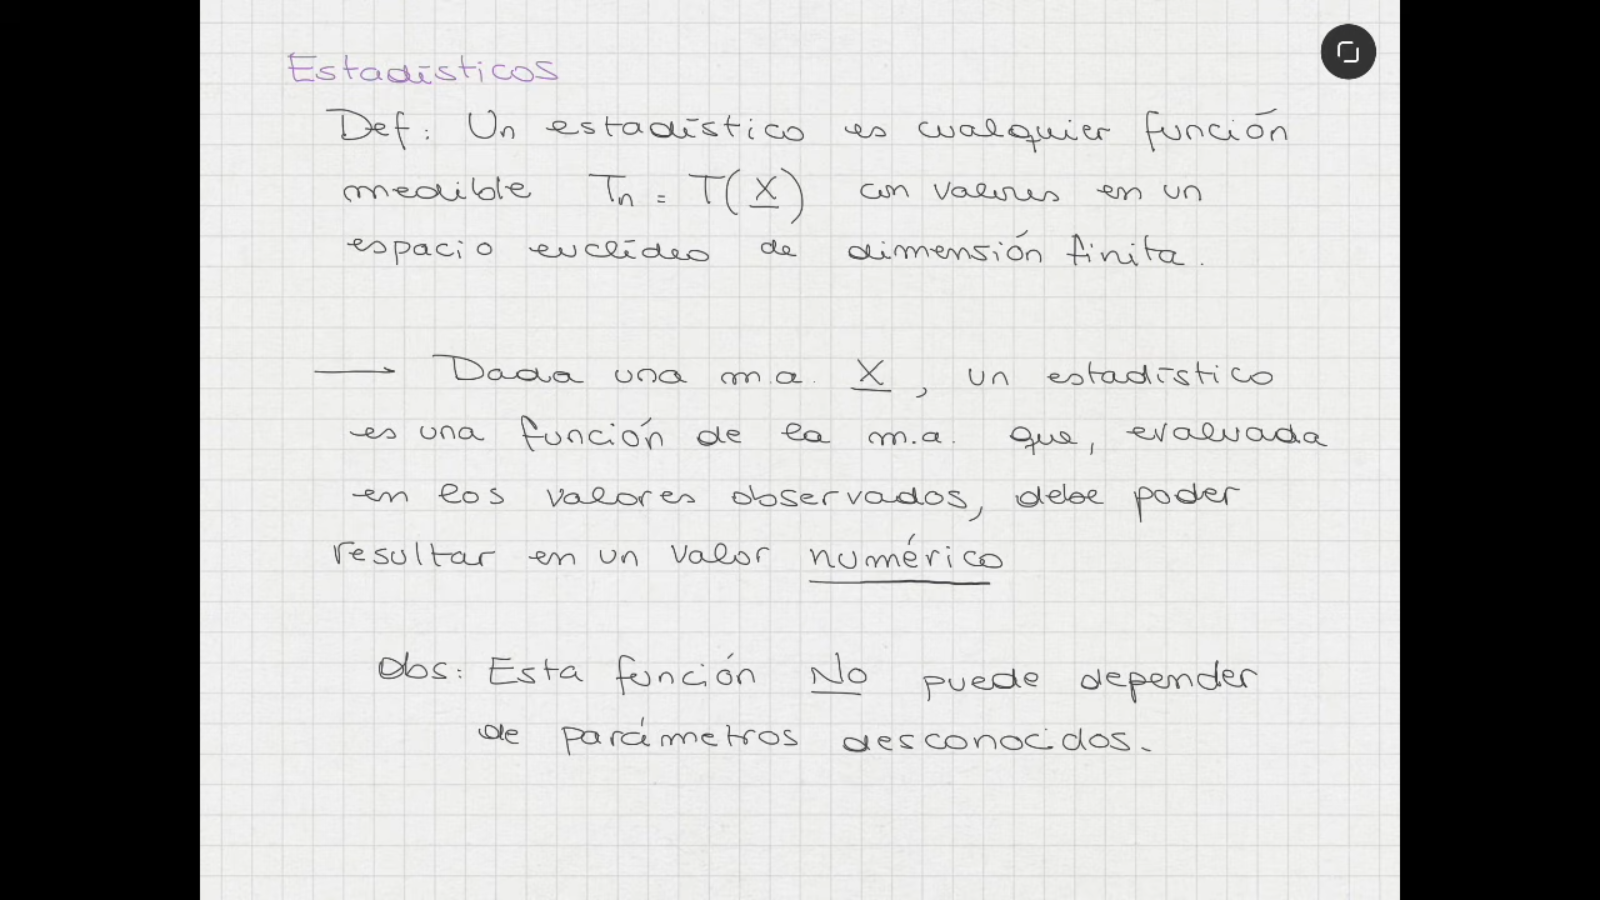 Estadísticos
Def: Un estadístico es cualquier función
medible Tn = T(X) con valores en un
espacio euclídeo de dimensión finita.
→ Dada una m.a. X, un estadístico
es una función de la m.a. que, evaluada
en los valores observados, debe poder
resultar en un valor numérico
Obs: Esta función No puede depender
de parámetros desconocidos.